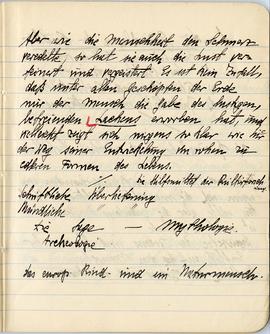 Aber wie die Menschheit den Schmerz
veredelte, so hat sie auch die Lust ver
feinert und vergeistert. Es ist kein Zufall,
daß unter allen Geschöpfen der Erde
nur der Mensch die Gabe des lustigen,
befreienden Lachens erworben hat, und
vielleicht zeigt sich nirgens so klar wie hier
der Weg seiner Entwicklung von rohen zu
edleren Formen des Lebens.
Die Hilfsmittel der
Schriftliche Überlieferung
Mündliche
Die Sage — Mythologie
Archeologie
das europ. Kind und ein Naturmensch.